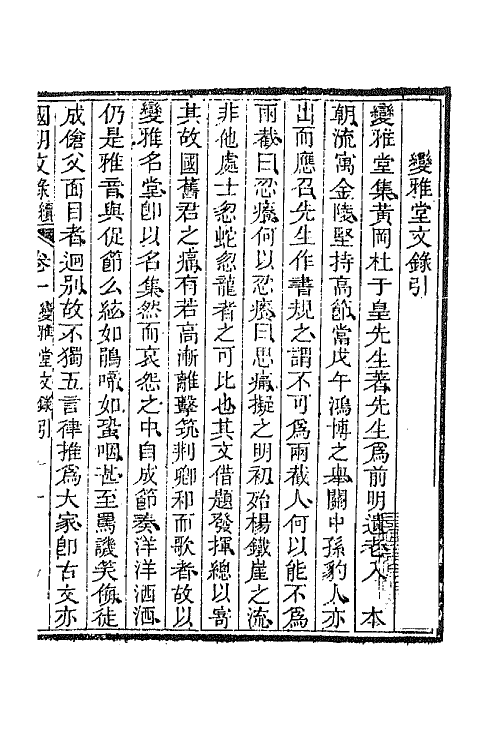 變雅堂文錄引
變雅堂集黃岡杜于皇先生著先生爲前明遺老入 本
朝流寓金陵堅持高節當戊午鴻博之舉關中孫豹人亦
出而應召先生作書規之謂不可爲兩截人何以能不爲
兩截曰忍癢何以忍癢曰思痛擬之明初殆楊鐵崖之流
非他處士忽蛇忽龍者之可比也其文借題發揮總以寄
其故國舊君之痛有若高漸離擊筑荆卿和而歌者故以
變雅名堂卽以名集然而哀怨之中自成節奏洋洋洒洒
仍是雅音與促節么絃如鵑啼如蛩咽甚至罵譏笑侮徒
成傖父面目者迥别故不獨五言律推爲大家卽古文亦
國朝文錄續 卷一 變雅堂文錄引 一